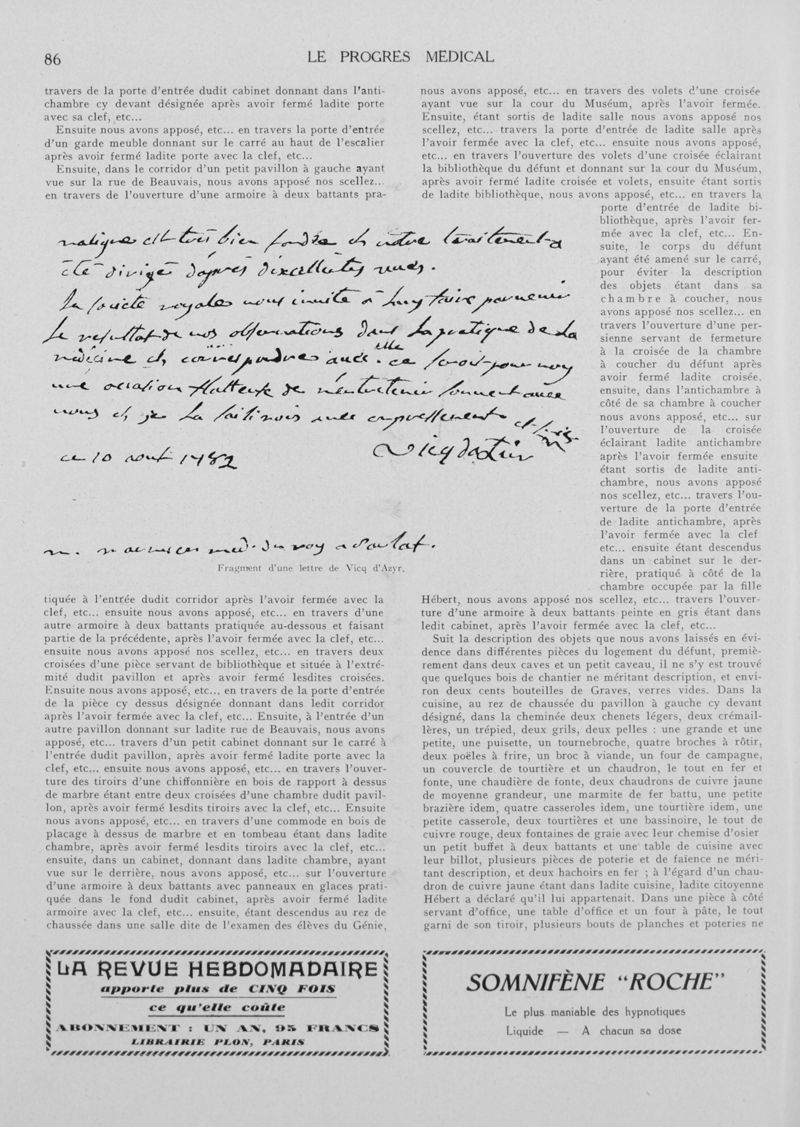 86
LE PROGRES MEDICAL
travers de la porte d'entrée dudit cabinet donnant dans l'anti-
chambre cy devant désignée après avoir fermé ladite porte
avec sa clef, etc...
Ensuite nous avons apposé, etc... en travers la porte d'entrée
d'un garde meuble donnant sur le carré au haut de l'escalier
après avoir fermé ladite porte avec la clef, etc...
Ensuite, dans le corridor d'un petit pavillon à gauche ayant
vue sur la rue de Beauvais, nous avons apposé nos scellez...
en travers de l'ouverture d'une armoire à deux battants pra-
et très bien fondée et votre traitement a
été dirigé d'après d'excellentes vues.
la société royale vous invite à luy faire parvenir
le résultat de vos observations dans la pratique de la
médecine et correspondre avec elle. ce seroit pour moy
une occasion flatteuse de m'entretenir souvent avec
vous et je la saisirois avec empressement
ce 10 aout 1782
Vicq d'azir
méd. du roy a Sarlat.
Fragment d'une lettre de Vicq d'Azyr.
tiquée à l'entrée dudit corridor après l'avoir fermée avec la
clef, etc... ensuite nous avons apposé, etc... en travers d'une
autre armoire à deux battants pratiquée au-dessous et faisant
partie de la précédente, après l'avoir fermée avec la clef, etc...
ensuite nous avons apposé nos scellez, etc... en travers deux
croisées d'une pièce servant de bibliothèque et située à l'extré-
mité dudit pavillon et après avoir fermé lesdites croisées.
Ensuite nous avons apposé, etc... en travers de la porte d'entrée
de la pièce cy dessus désignée donnant dans ledit corridor
après l'avoir fermée avec la clef, etc... Ensuite, à l'entrée d'un
autre pavillon donnant sur ladite rue de Beauvais, nous avons
apposé, etc... travers d'un petit cabinet donnant sur le carré à
l'entrée dudit pavillon, après avoir fermé ladite porte avec la
clef, etc... ensuite nous avons apposé, etc... en travers l'ouver-
ture des tiroirs d'une chiffonnière en bois de rapport à dessus
de marbre étant entre deux croisées d'une chambre dudit pavil-
lon, après avoir fermé lesdits tiroirs avec la clef, etc... Ensuite
nous avons apposé, etc... en travers d'une commode en bois de
placage à dessus de marbre et en tombeau étant dans ladite
chambre, après avoir fermé lesdits tiroirs avec la clef, etc...
ensuite, dans un cabinet, donnant dans ladite chambre, ayant
vue sur le derrière, nous avons apposé, etc... sur l'ouverture
d'une armoire à deux battants avec panneaux en glaces prati-
quée dans le fond dudit cabinet, après avoir fermé ladite
armoire avec la clef, etc... ensuite, étant descendus au rez de
chaussée dans une salle dite de l'examen des élèves du Génie,
nous avons apposé, etc... en travers des volets d'une croisée
ayant vue sur la cour du Muséum, après l'avoir fermée.
Ensuite, étant sortis de ladite salle nous avons apposé nos
scellez, etc... travers la porte d'entrée de ladite salle après
l'avoir fermée avec la clef, etc... ensuite nous avons apposé,
etc... en travers l'ouverture des volets d'une croisée éclairant
la bibliothèque du défunt et donnant sur la cour du Muséum,
après avoir fermé ladite croisée et volets, ensuite étant sortis
de ladite bibliothèque, nous avons apposé, etc... en travers la
porte d'entrée de ladite bi-
bliothèque, après l'avoir fer-
mée avec la clef, etc... En-
suite, le corps du défunt
ayant été amené sur le carré,
pour éviter la description
des objets étant dans sa
chambre à coucher, nous
avons apposé nos scellez... en
travers l'ouverture d'une per-
sienne servant de fermeture
à la croisée de la chambre
à coucher du défunt après
avoir fermé ladite croisée.
ensuite, dans l'antichambre à
côté de sa chambre à coucher
nous avons apposé, etc... sur
l'ouverture de la croisée
éclairant ladite antichambre
après l'avoir fermée ensuite
étant sortis de ladite anti-
chambre, nous avons apposé
nos scellez, etc... travers l'ou-
verture de la porte d'entrée
de ladite antichambre, après
l'avoir fermée avec la clef
etc... ensuite étant descendus
dans un cabinet sur le der-
rière, pratiqué à côté de la
chambre occupée par la fille
Hébert, nous avons apposé nos scellez, etc... travers l'ouver-
ture d'une armoire à deux battants peinte en gris étant dans
ledit cabinet, après l'avoir fermée avec la clef, etc...
Suit la description des objets que nous avons laissés en évi-
dence dans différentes pièces du logement du défunt, premiè-
rement dans deux caves et un petit caveau, il ne s'y est trouvé
que quelques bois de chantier ne méritant description, et envi-
ron deux cents bouteilles de Graves, verres vides. Dans la
cuisine, au rez de chaussée du pavillon à gauche cy devant
désigné, dans la cheminée deux chenets légers, deux crémail-
lères, un trépied, deux grils, deux pelles : une grande et une
petite, une puisette, un tournebroche, quatre broches à rôtir,
deux poëles à frire, un broc à viande, un four de campagne,
un couvercle de tourtière et un chaudron, le tout en fer et
fonte, une chaudière de fonte, deux chaudrons de cuivre jaune
de moyenne grandeur, une marmite de fer battu, une petite
brazière idem, quatre casseroles idem, une tourtière idem, une
petite casserole, deux tourtières et une bassinoire, le tout de
cuivre rouge, deux fontaines de graie avec leur chemise d'osier
un petit buffet à deux battants et une table de cuisine avec
leur billot, plusieurs pièces de poterie et de faience ne méri-
tant description, et deux hachoirs en fer ; à l'égard d'un chau-
dron de cuivre jaune étant dans ladite cuisine, ladite citoyenne
Hébert a déclaré qu'il lui appartenait. Dans une pièce à côté
servant d'office, une table d'office et un four à pâte, le tout
garni de son tiroir, plusieurs bouts de planches et poteries ne
LA REVUE HEBDOMADAIRE
apporte plus de CINQ FOIS
ce qu'elle coûte
ABONNEMENT : UN AN, 95 FRANCS
LIBRAIRIE PLON, PARIS
SOMNIFÈNE "ROCHE"
Le plus maniable des hypnotiques
Liquide — A chacun sa dose